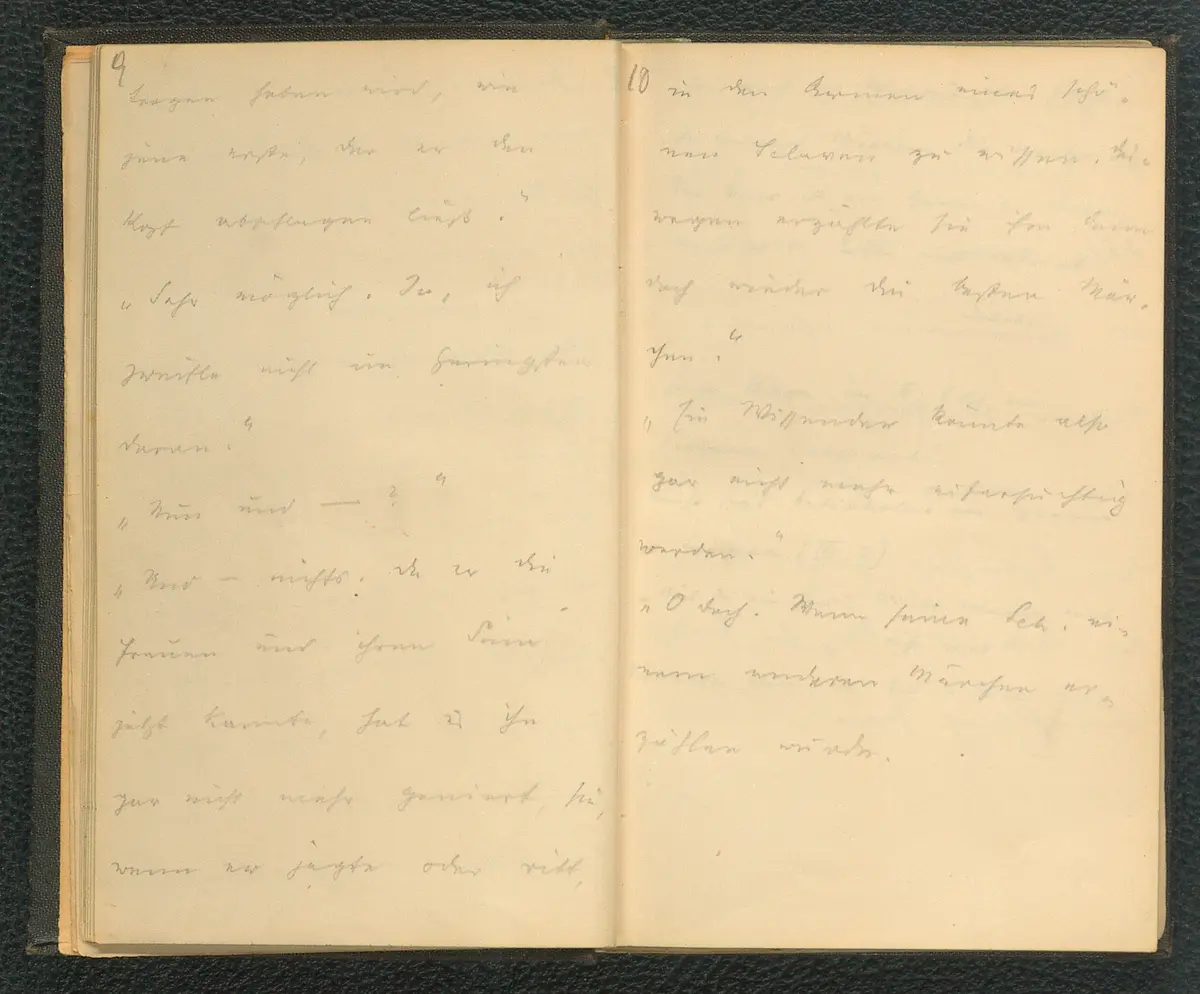 9
trogen haben wird, wie
jene erste, der er den
Kopf abschlagen ließ."
„Sehr möglich. Ja, ich
zweifle nicht im Geringsten
daran."
„Nun und — ?"
„Und — nichts. Da er die
Frauen und ihren Sinn
jetzt kannte, hat es ihn
gar nicht mehr geniert, sie,
wenn er jagte oder ritt,
10
in den Armen eines schö-
nen Sclaven zu wissen. Des-
wegen erzählte sie ihm dann
doch wieder die besten Mär-
chen."
„Ein Wissender könnte also
gar nicht mehr eifersüchtig
werden."
„O doch. Wenn seine Sch. ei-
nem anderen Märchen er-
zählen würde.